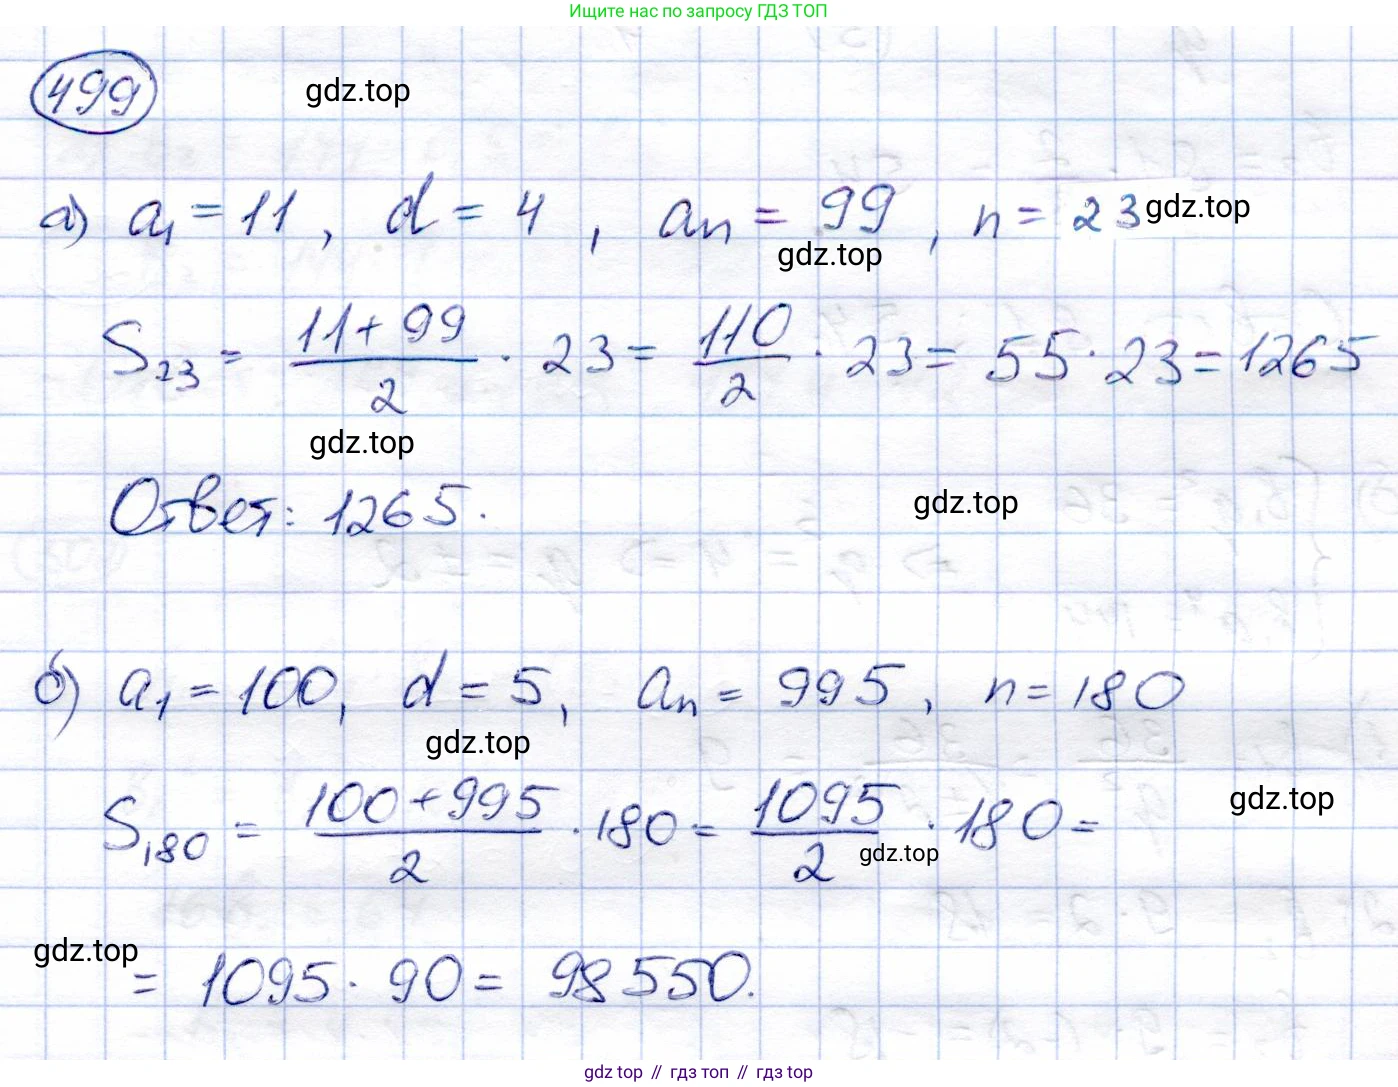 Ищите нас по запросу ГДЗ ТОП
499
gdz.top
а) a₁ = 11, d = 4, aₙ = 99, n = 23 gdz.top
gdz.top
S₂₃ = (11 + 99)/2 · 23 = 110/2 · 23 = 55 · 23 = 1265
gdz.top
Ответ: 1265.
gdz.top
б) a₁ = 100, d = 5, aₙ = 995, n = 180
gdz.top
S₁₈₀ = (100 + 995)/2 · 180 = 1095/2 · 180 =
gdz.top
gdz.top
gdz.top
= 1095 · 90 = 98550.
gdz top // гдз топ // гдз top